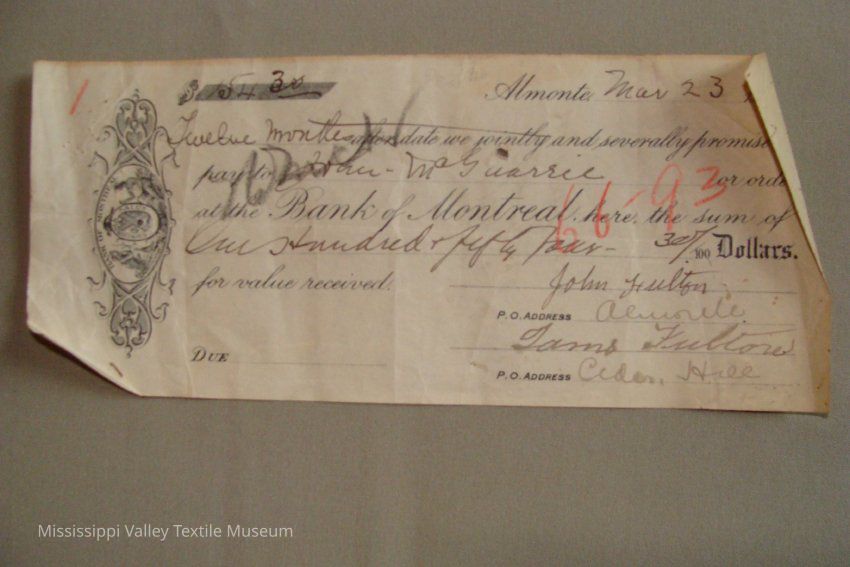 1
$ 154 30
Almonte, Mar 23
Twelve Months after date we jointly and severally promise
pay to McQuarrie or order
at the Bank of Montreal, here, the sum of
One Hundred & fifty four 30/100 Dollars.
for value received.
66-93
John Fulton
P.O. ADDRESS Almonte
James Fulton
DUE
P.O. ADDRESS Cedar Hill
BANK OF MONTREAL
Mississippi Valley Textile Museum